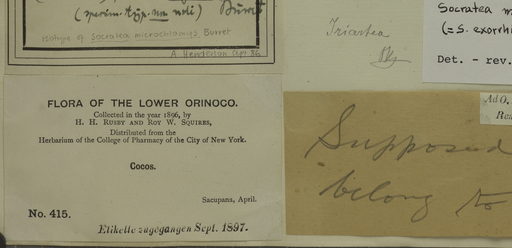 (specim. typ. non vidi) Burret
isotype of Socratea microchlamys Burret
A. Henderson Sept 86
FLORA OF THE LOWER ORINOCO.
Collected in the year 1896, by
H. H. RUSBY AND ROY W. SQUIRES,
Distributed from the
Herbarium of the College of Pharmacy of the City of New York.
Cocos.
Sacupana, April.
No. 415.
Etikette zugegangen Sept. 1897.
Iriartea
Socratea m
(=S. exorrhi
Det. - rev.
Ad O.
Supposed
belong to